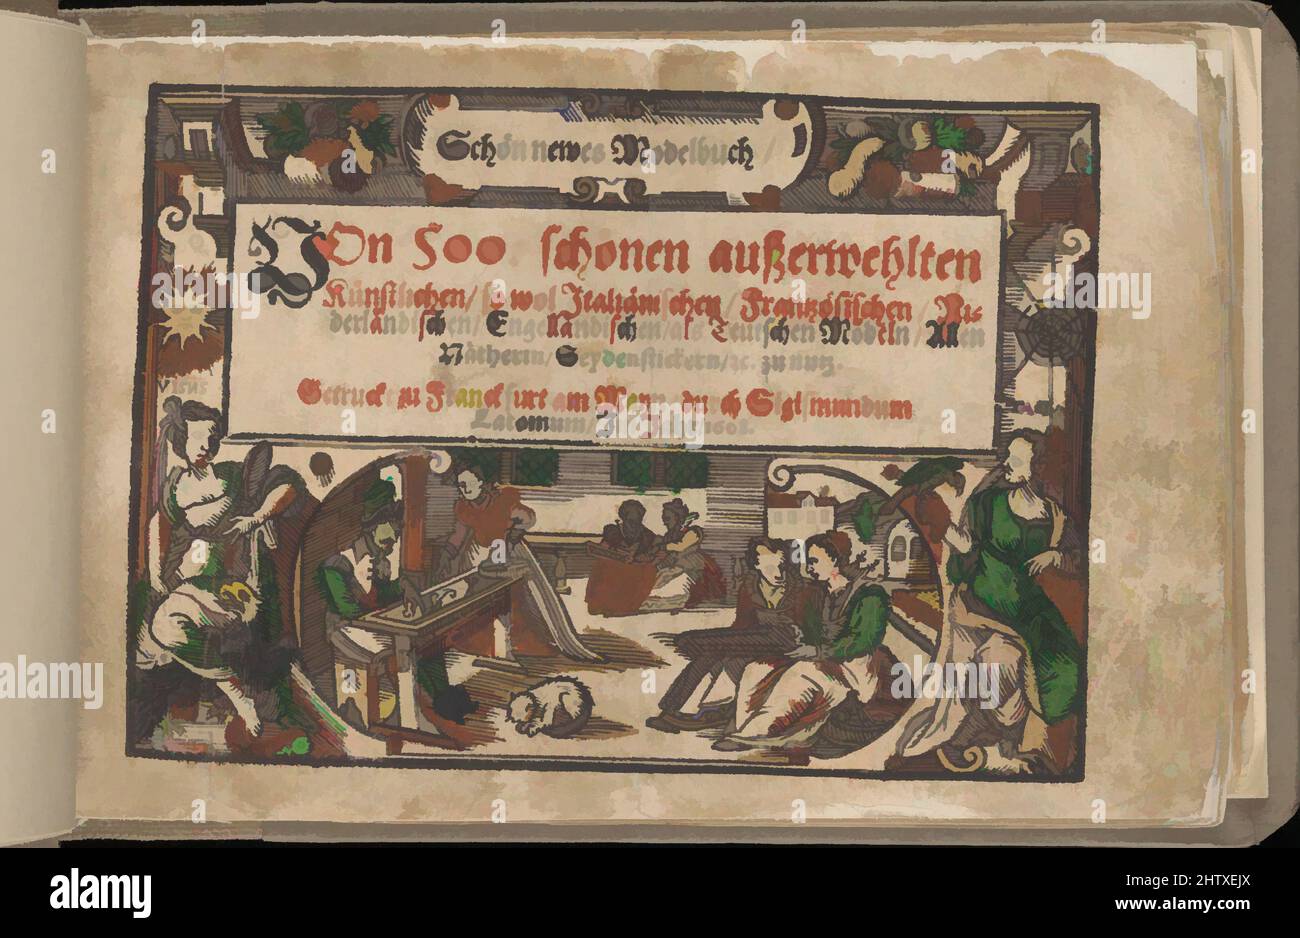 Schön newes Modelbuch /
VOn 500 schönen außerwehlten
Künstlichen / so wol Italiänischen / Französischen / Ni-
derländischen / Engelländischen / als Teutschen Modeln / Allen
Nätherin / Seydenstickern / ꝛc. zu nutz.
Getruckt zu Franckfurt am Mayn durch Sigismundum
Latomum /
alamy
Image ID: 2HTXEJX
www.alamy.com